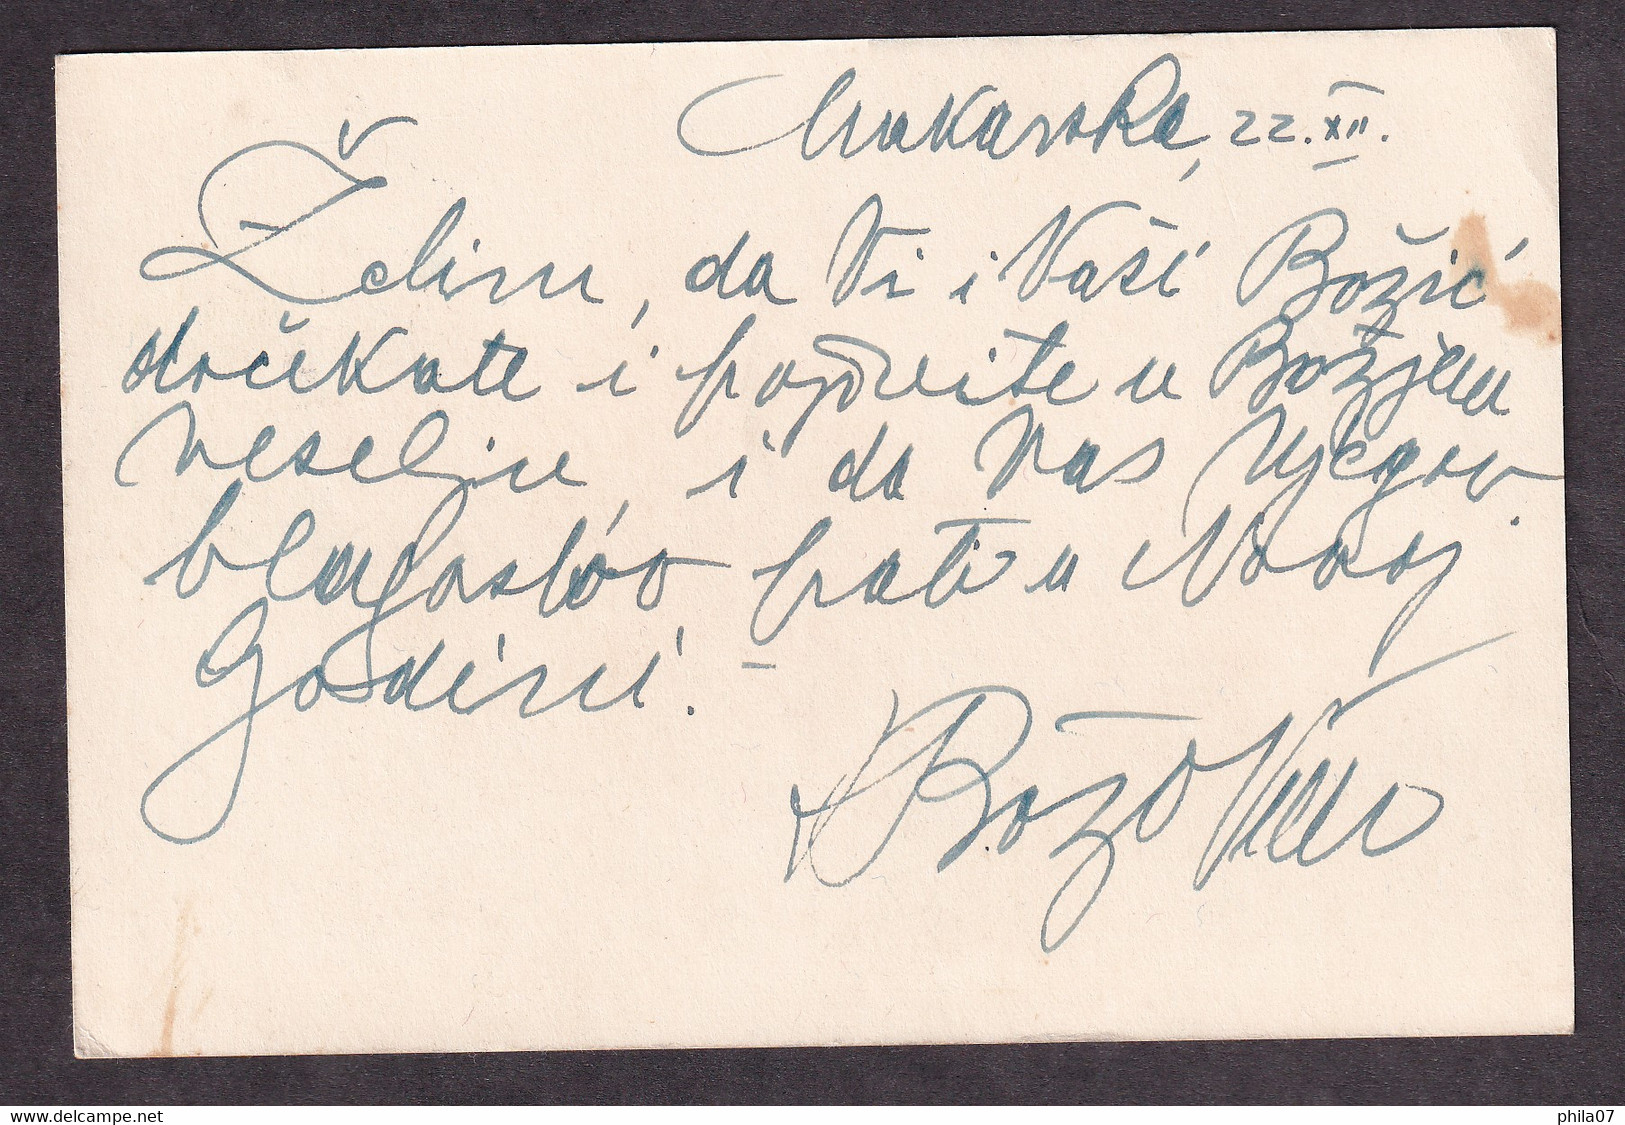 Makarska, 22. XII.
Želim, da Vi i Vaši Božić
dočekate i provedite u Božjem
veselju, i da Vas Njegov
blagoslov prati u Novoj
Godini. –
Božo
www.delcampe.net
phila07